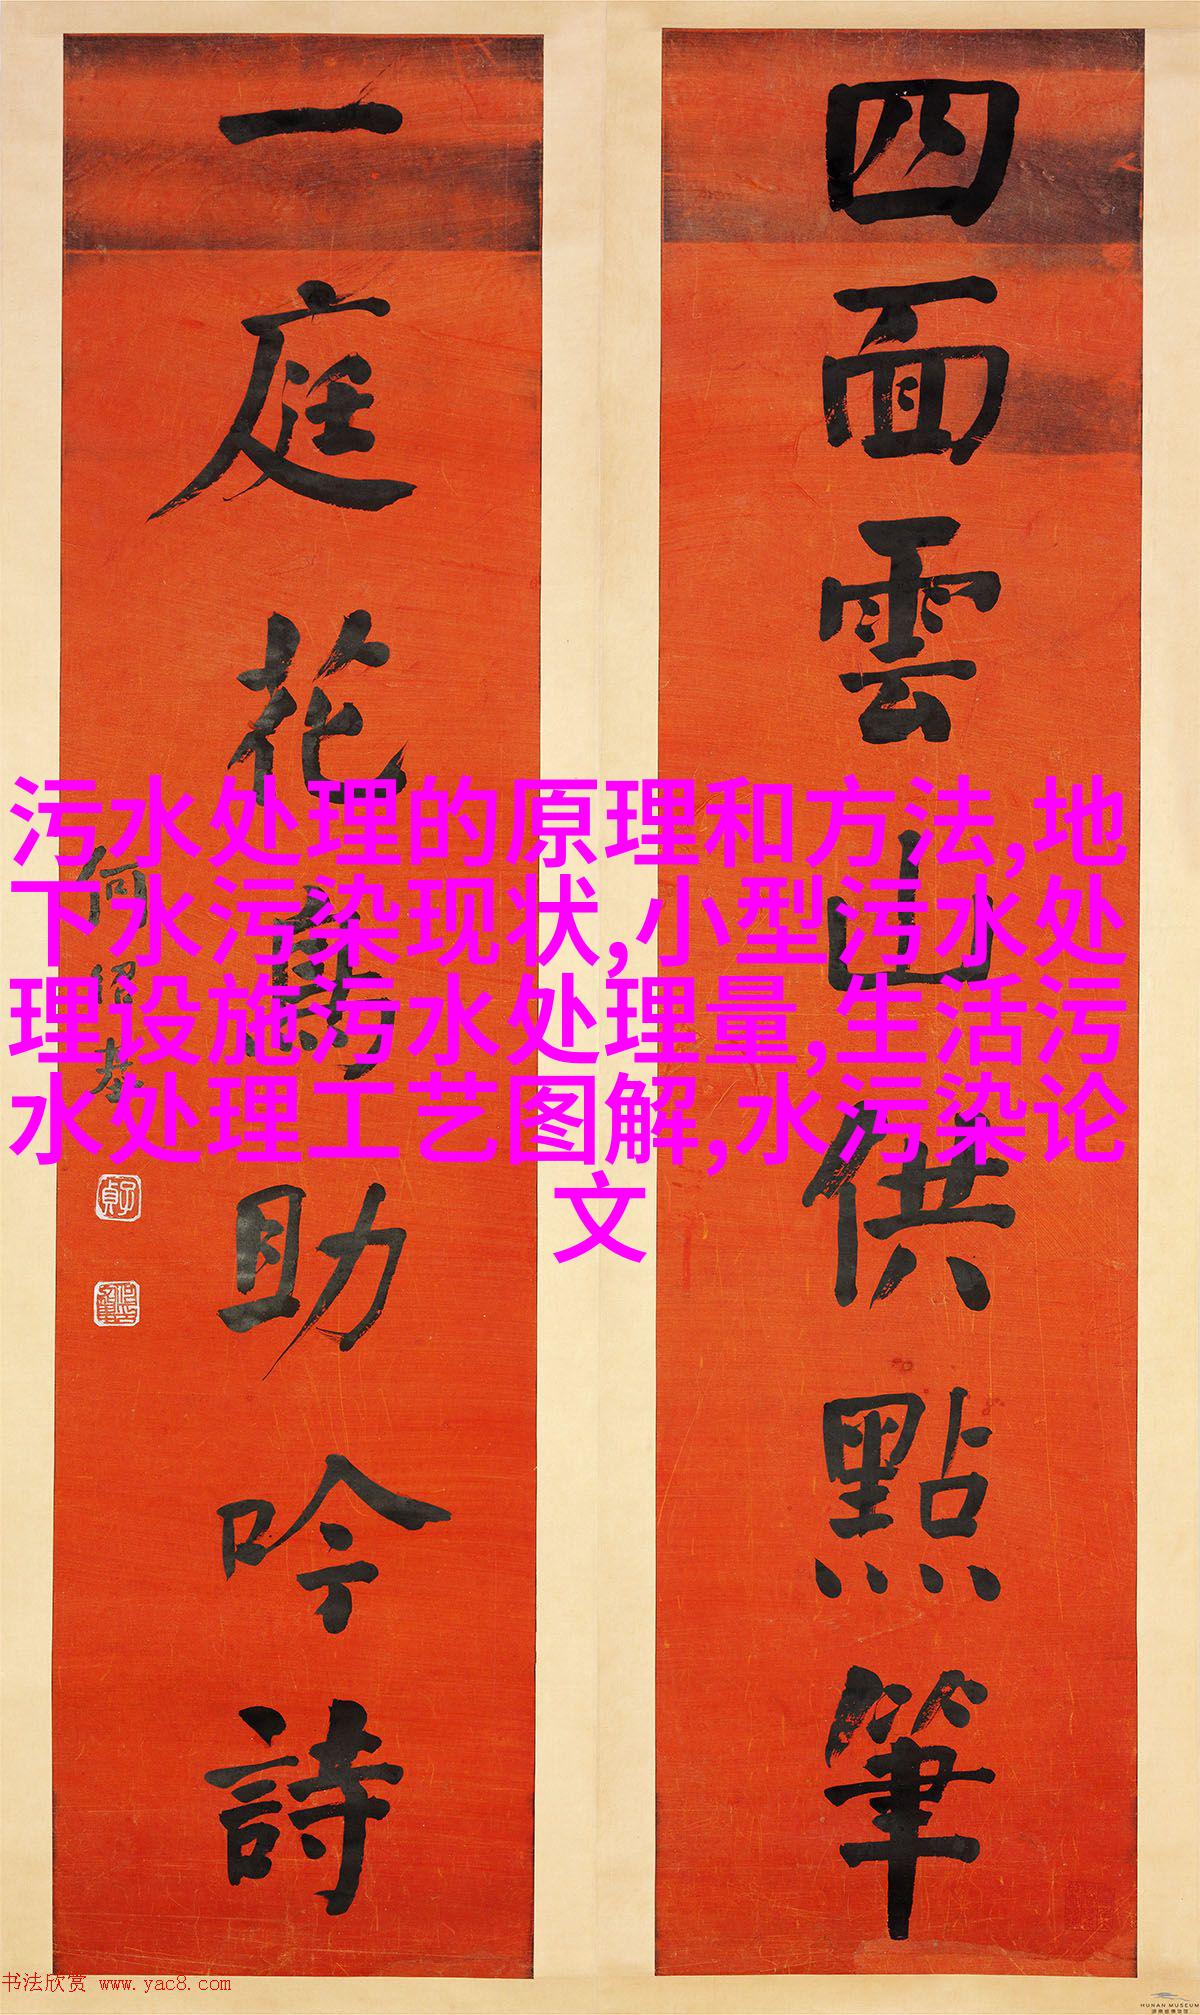 四面雲山供點筆
一庭花鳥助吟詩
何紹基
污水处理的原理和方法,地
下水污染现状,小型污水处
理设施污水处理量,生活污
水处理工艺图解,水污染论
文
书法欣赏 www.yac8.com
HUNAN MUSEUM
湖南博物院